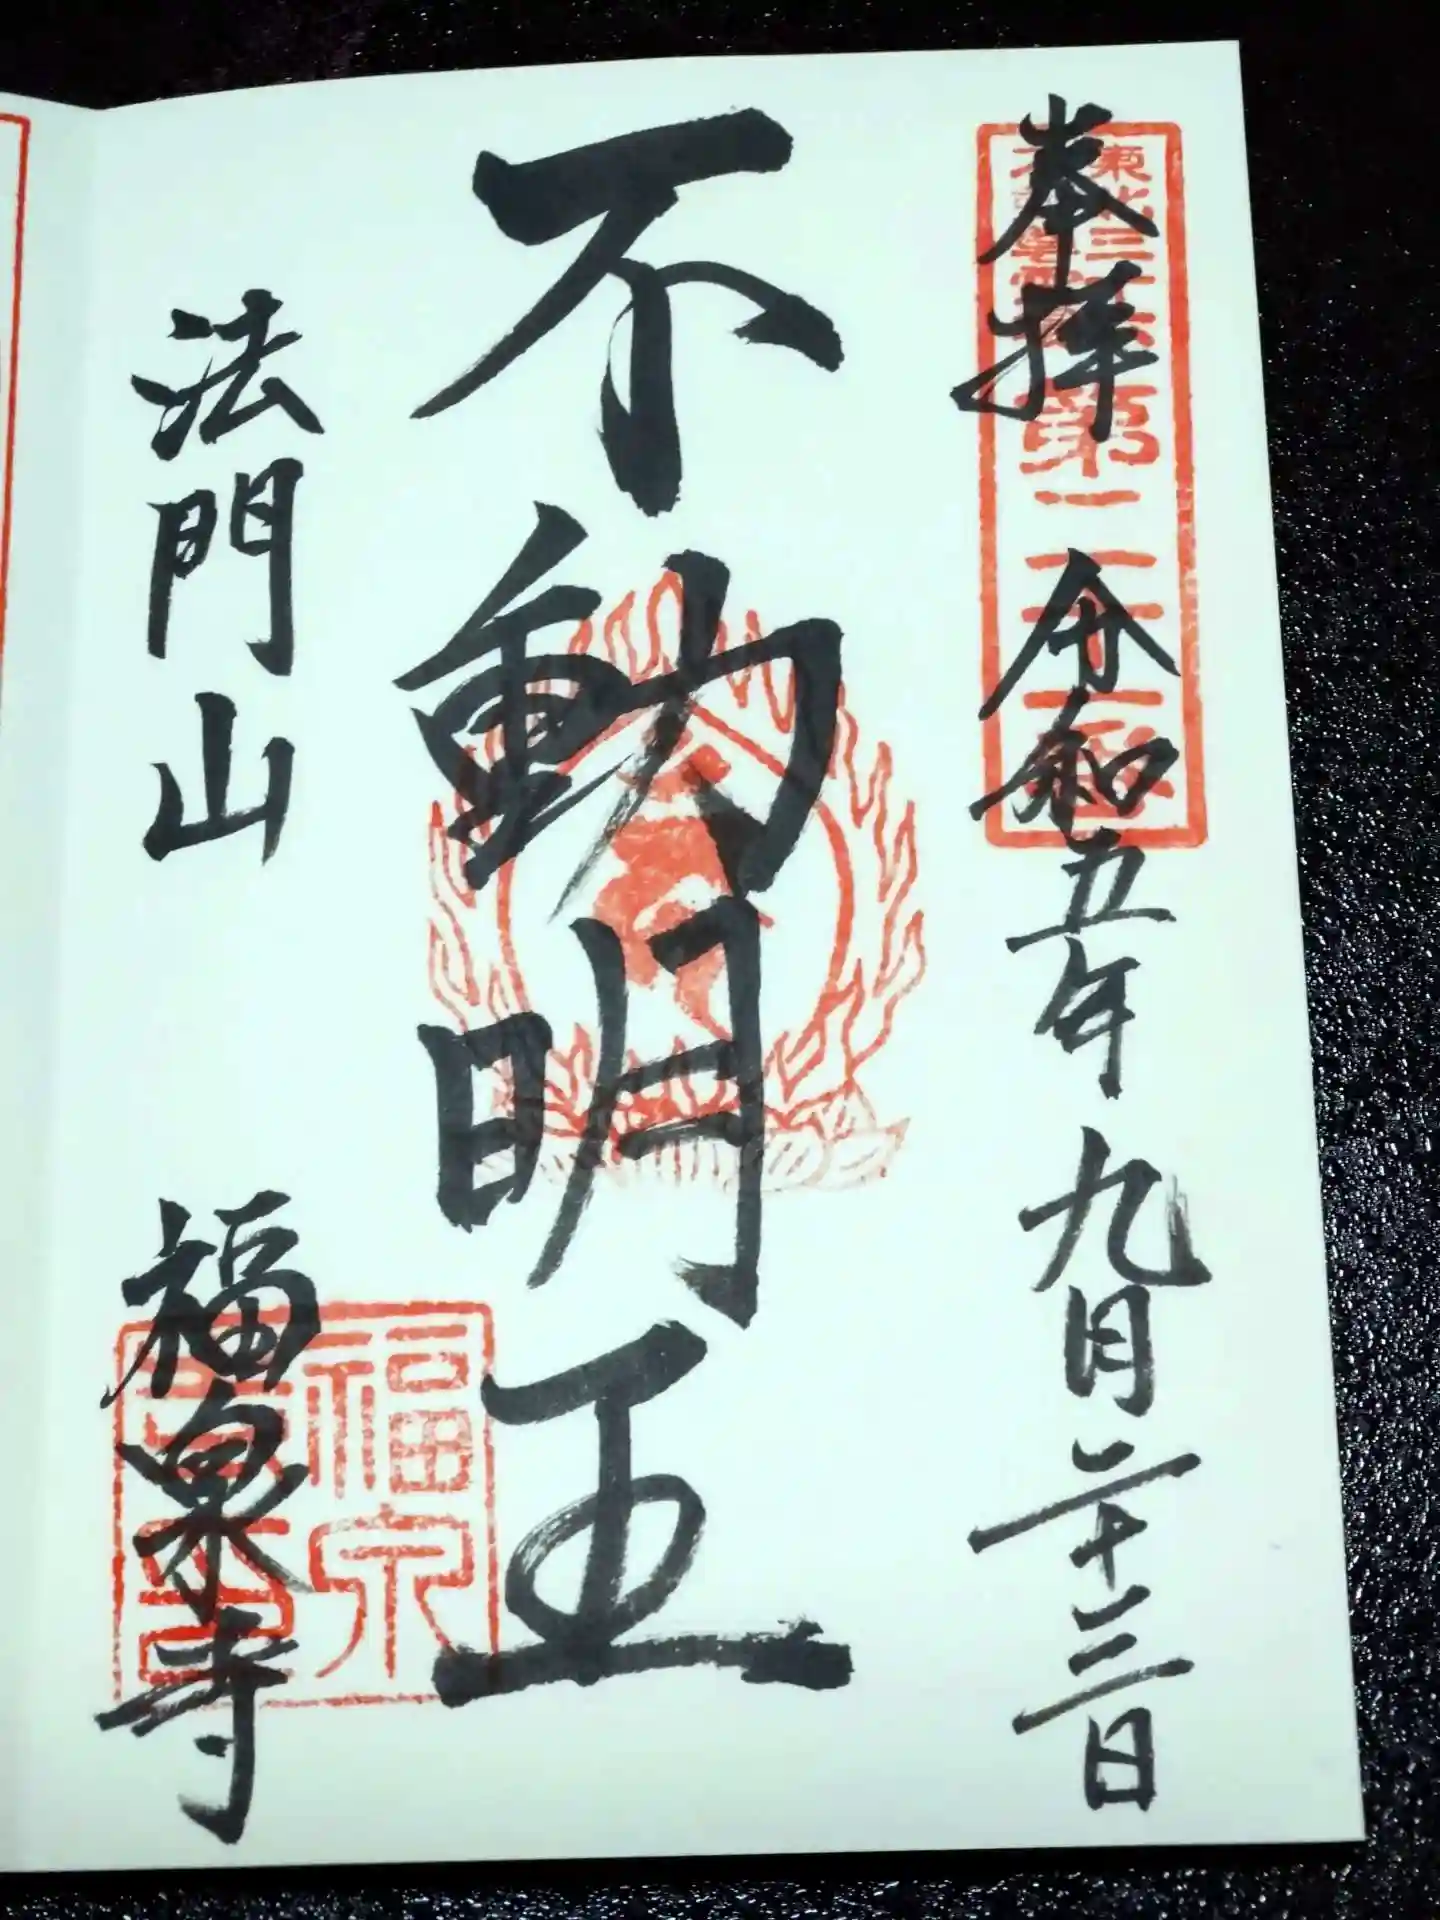 奉拝 令和五年九月二十三日
東北三十六不動尊霊場第二十二番
不動明王
法門山 福泉寺
福泉寺